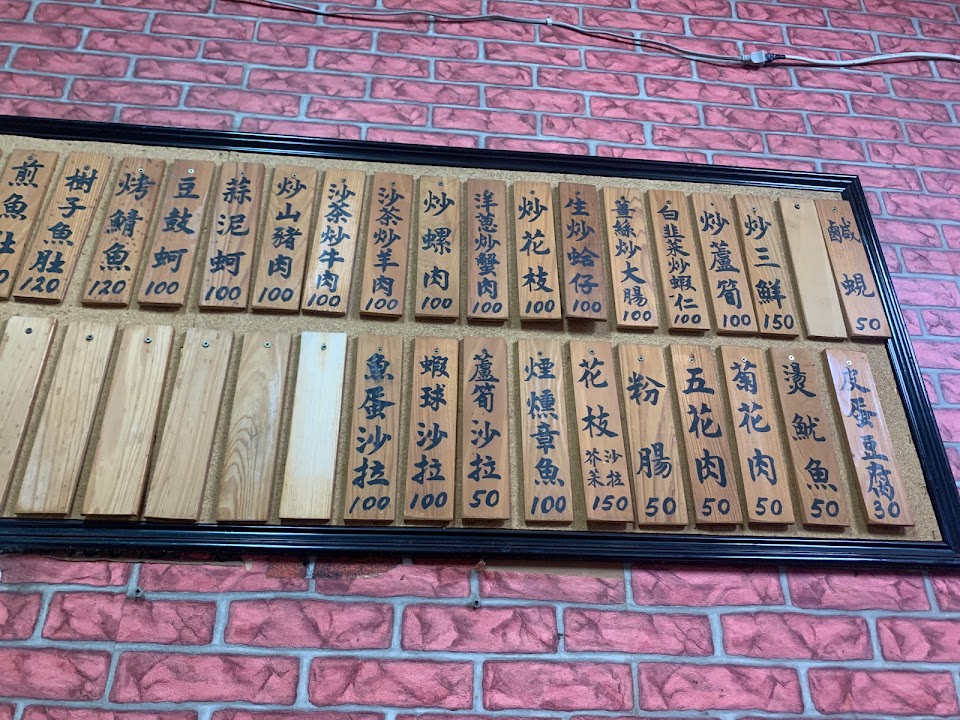 鹹蜆 50
炒三鮮 150
炒蘆筍 100
白韭菜炒蝦仁 100
薑絲炒大腸 100
生炒蛤仔 100
炒花枝 100
洋蔥炒蟹肉 100
炒螺肉 100
沙茶炒羊肉 100
沙茶炒牛肉 100
炒山豬肉 100
蒜泥蚵 100
豆鼓蚵 100
烤鯖魚 120
樹子魚肚 120
煎魚肚
皮蛋豆腐 30
燙魷魚 50
菊花肉 50
五花肉 50
粉腸 50
花枝沙拉芥菜 150
煙燻章魚 100
蘆筍沙拉 50
蝦球沙拉 100
魚蛋沙拉 100